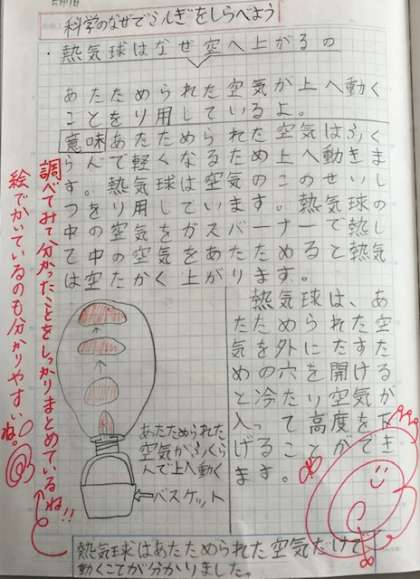 科学のなぜでふしぎをしらべよう
・熱気球はなぜ空へ上がるの
あたためられた空気が上へ動く
ことをり用しているよ。
意味あたためられた空気はふく
らんで軽くなるため上へ動きま
す。熱気球は空気のこのせいし
つをり用しています。熱気球の
中の空気をガスバーナーで熱し
て中の空気をあたためると熱気
は空たかく上がります。
熱気球は、あ
たためられた空
気を外にだすた
めの穴を開ける
と冷たり空気が
入って高度を下
げることができ
ます。
あたためられた
空気がふくら
んで上へ動く
←バスケット
熱気球はあたためられた空気だけで
動くことが分かりました。
調べてみて分かったことをしっかりまとめているね!!
絵でかいているのも分かりやすいね。